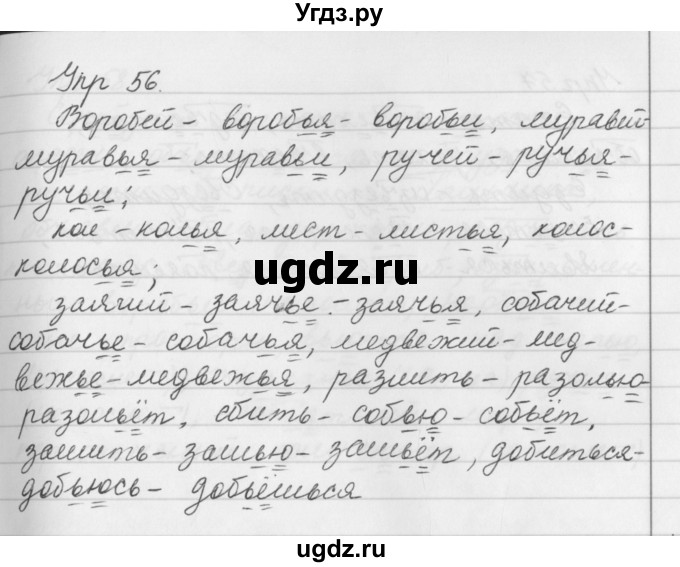 Угдз.ру
Упр 56.
Воробей - воробья - воробьи, муравей-
муравья - муравьи, ручей - ручья-
ручьи;
кол - колья, лист - листья, колос-
колосья;
заячий - заячье - заячья, собачий-
собачье - собачья, медвежий - мед-
вежье - медвежья, разлить - разолью-
разольёт, сбить - собью - собьёт,
зашить - зашью - зашьёт, добиться-
добьюсь - добьёшься
ugdz.ru
ugdz.ru